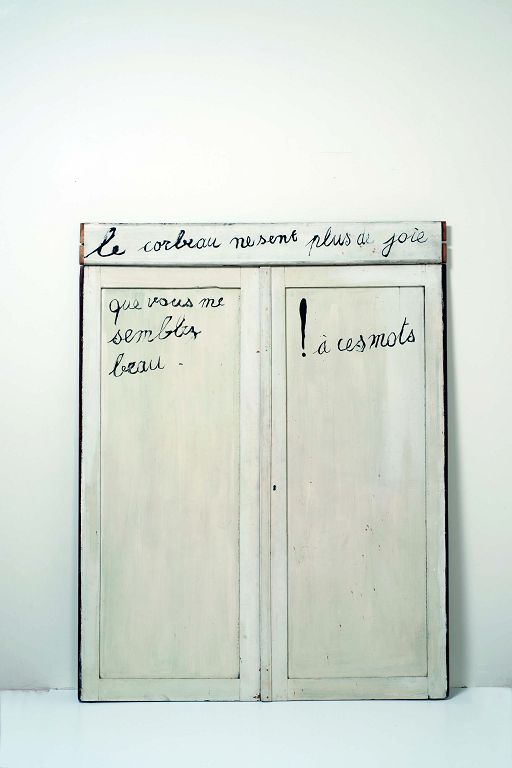 le corbeau ne sent plus de joie
que vous me
semblez
beau .
! à ces mots